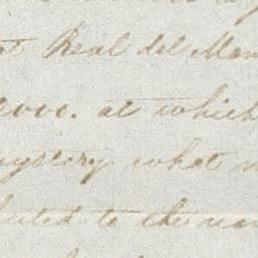 at Real del Mon
000. at which
mystery what
buted to the